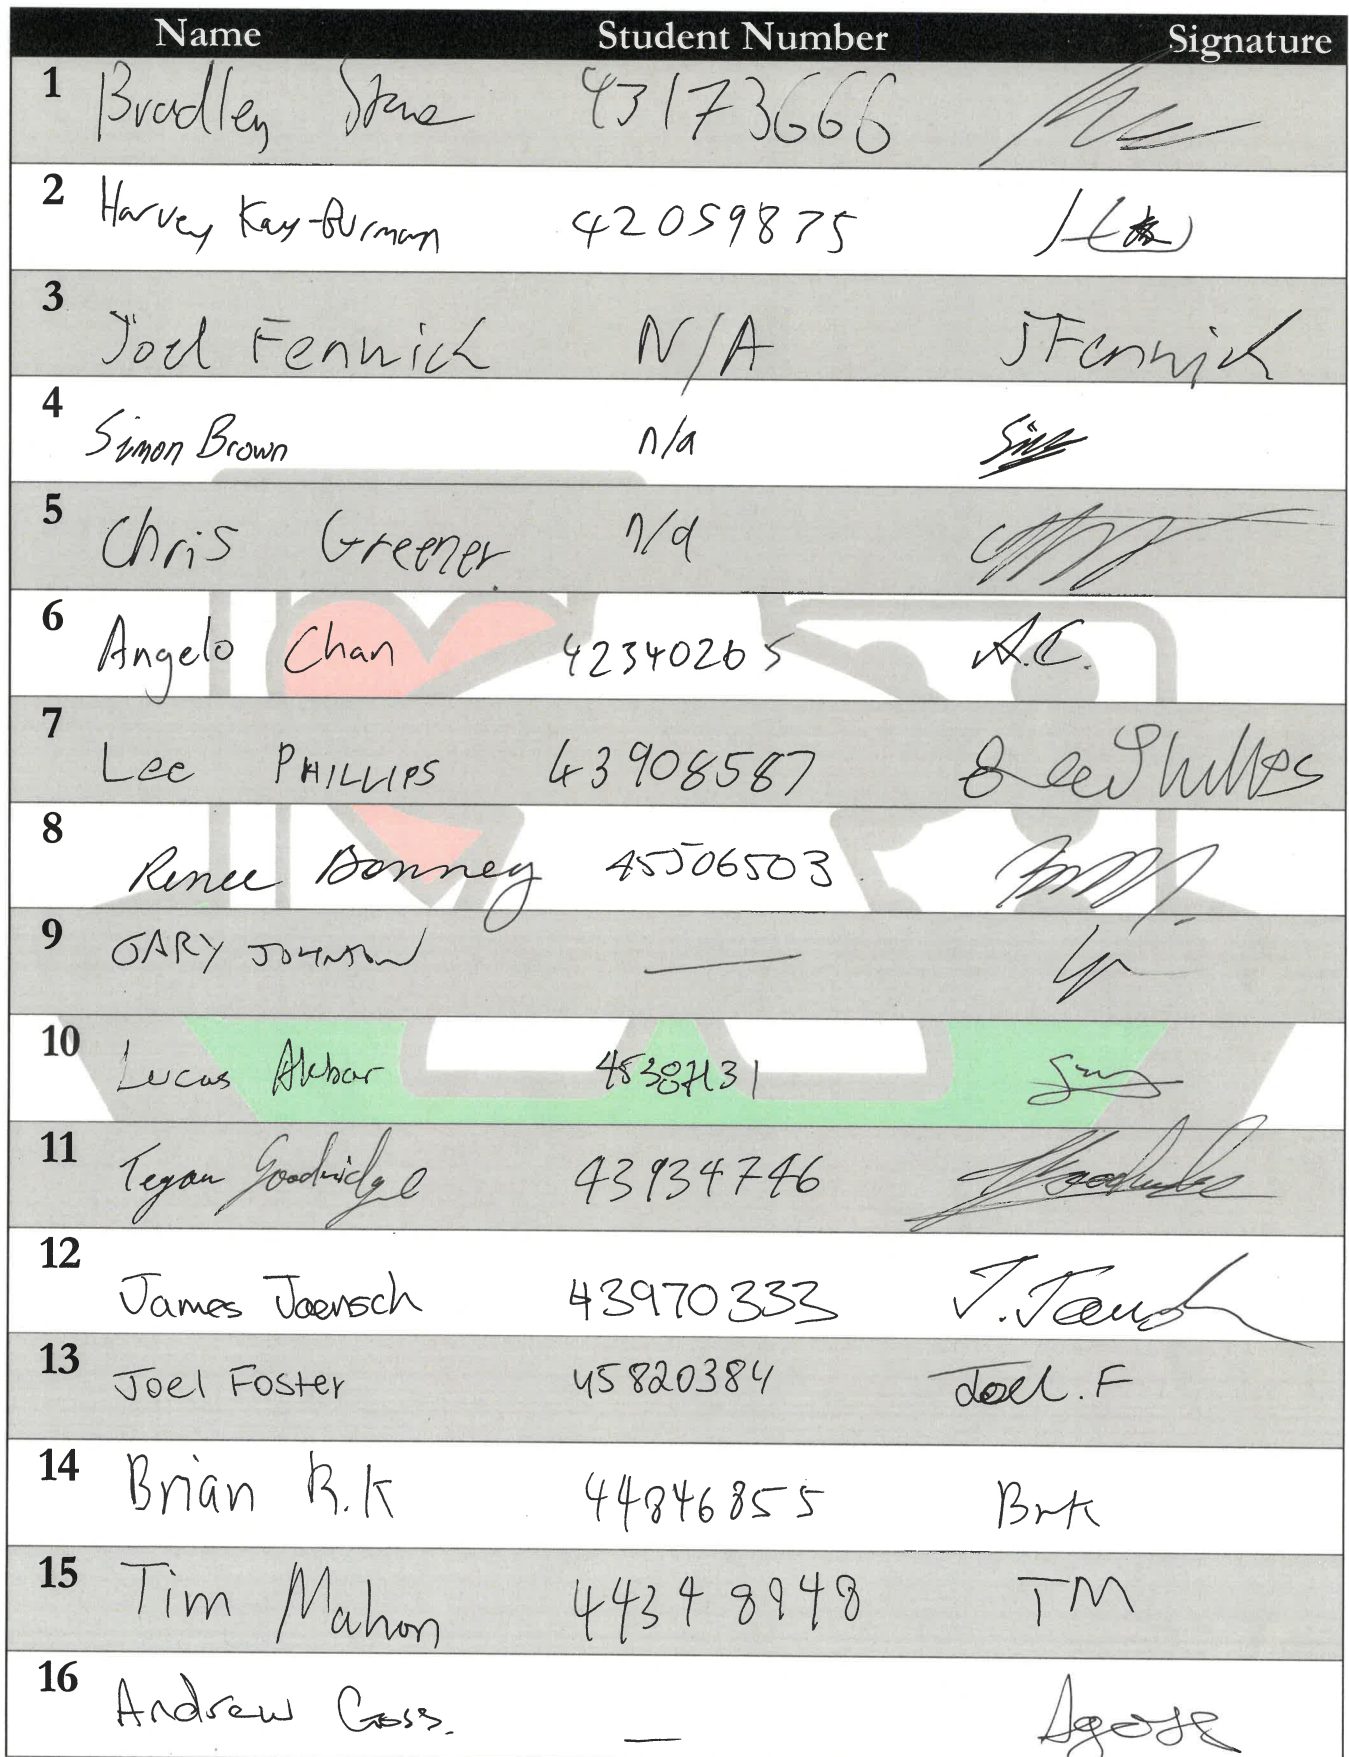 Name Student Number Signature
1 Bradley Stone 43173666
2 Harvey Kay-Burman 42059875
3 Joel Fenwick N/A JFenwick
4 Simon Brown n/a
5 Chris Greener n/a
6 Angelo Chan 42340265 A.C.
7 Lee PHILLIPS 43908587 Lee Phillips
8 Renee Bonney 45506503
9 GARY JOHNSON —
10 Lucas Akbar
11 Tegan Goodridge 43934746
12 James Jaensch 43970333 J. Jaensch
13 Joel Foster 45820384 Joel.F
14 Brian R.K 44846855 BrK
15 Tim Mahon 44348948 TM
16 Andrew Goss. —